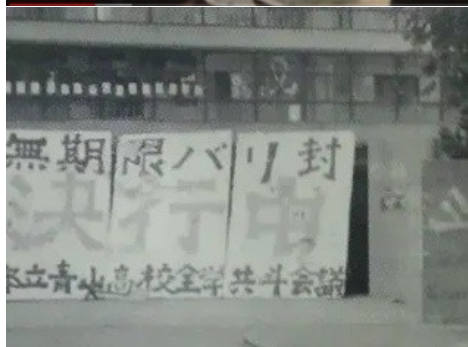 無期限バリ封
決行中
都立青山高校全学共斗会議